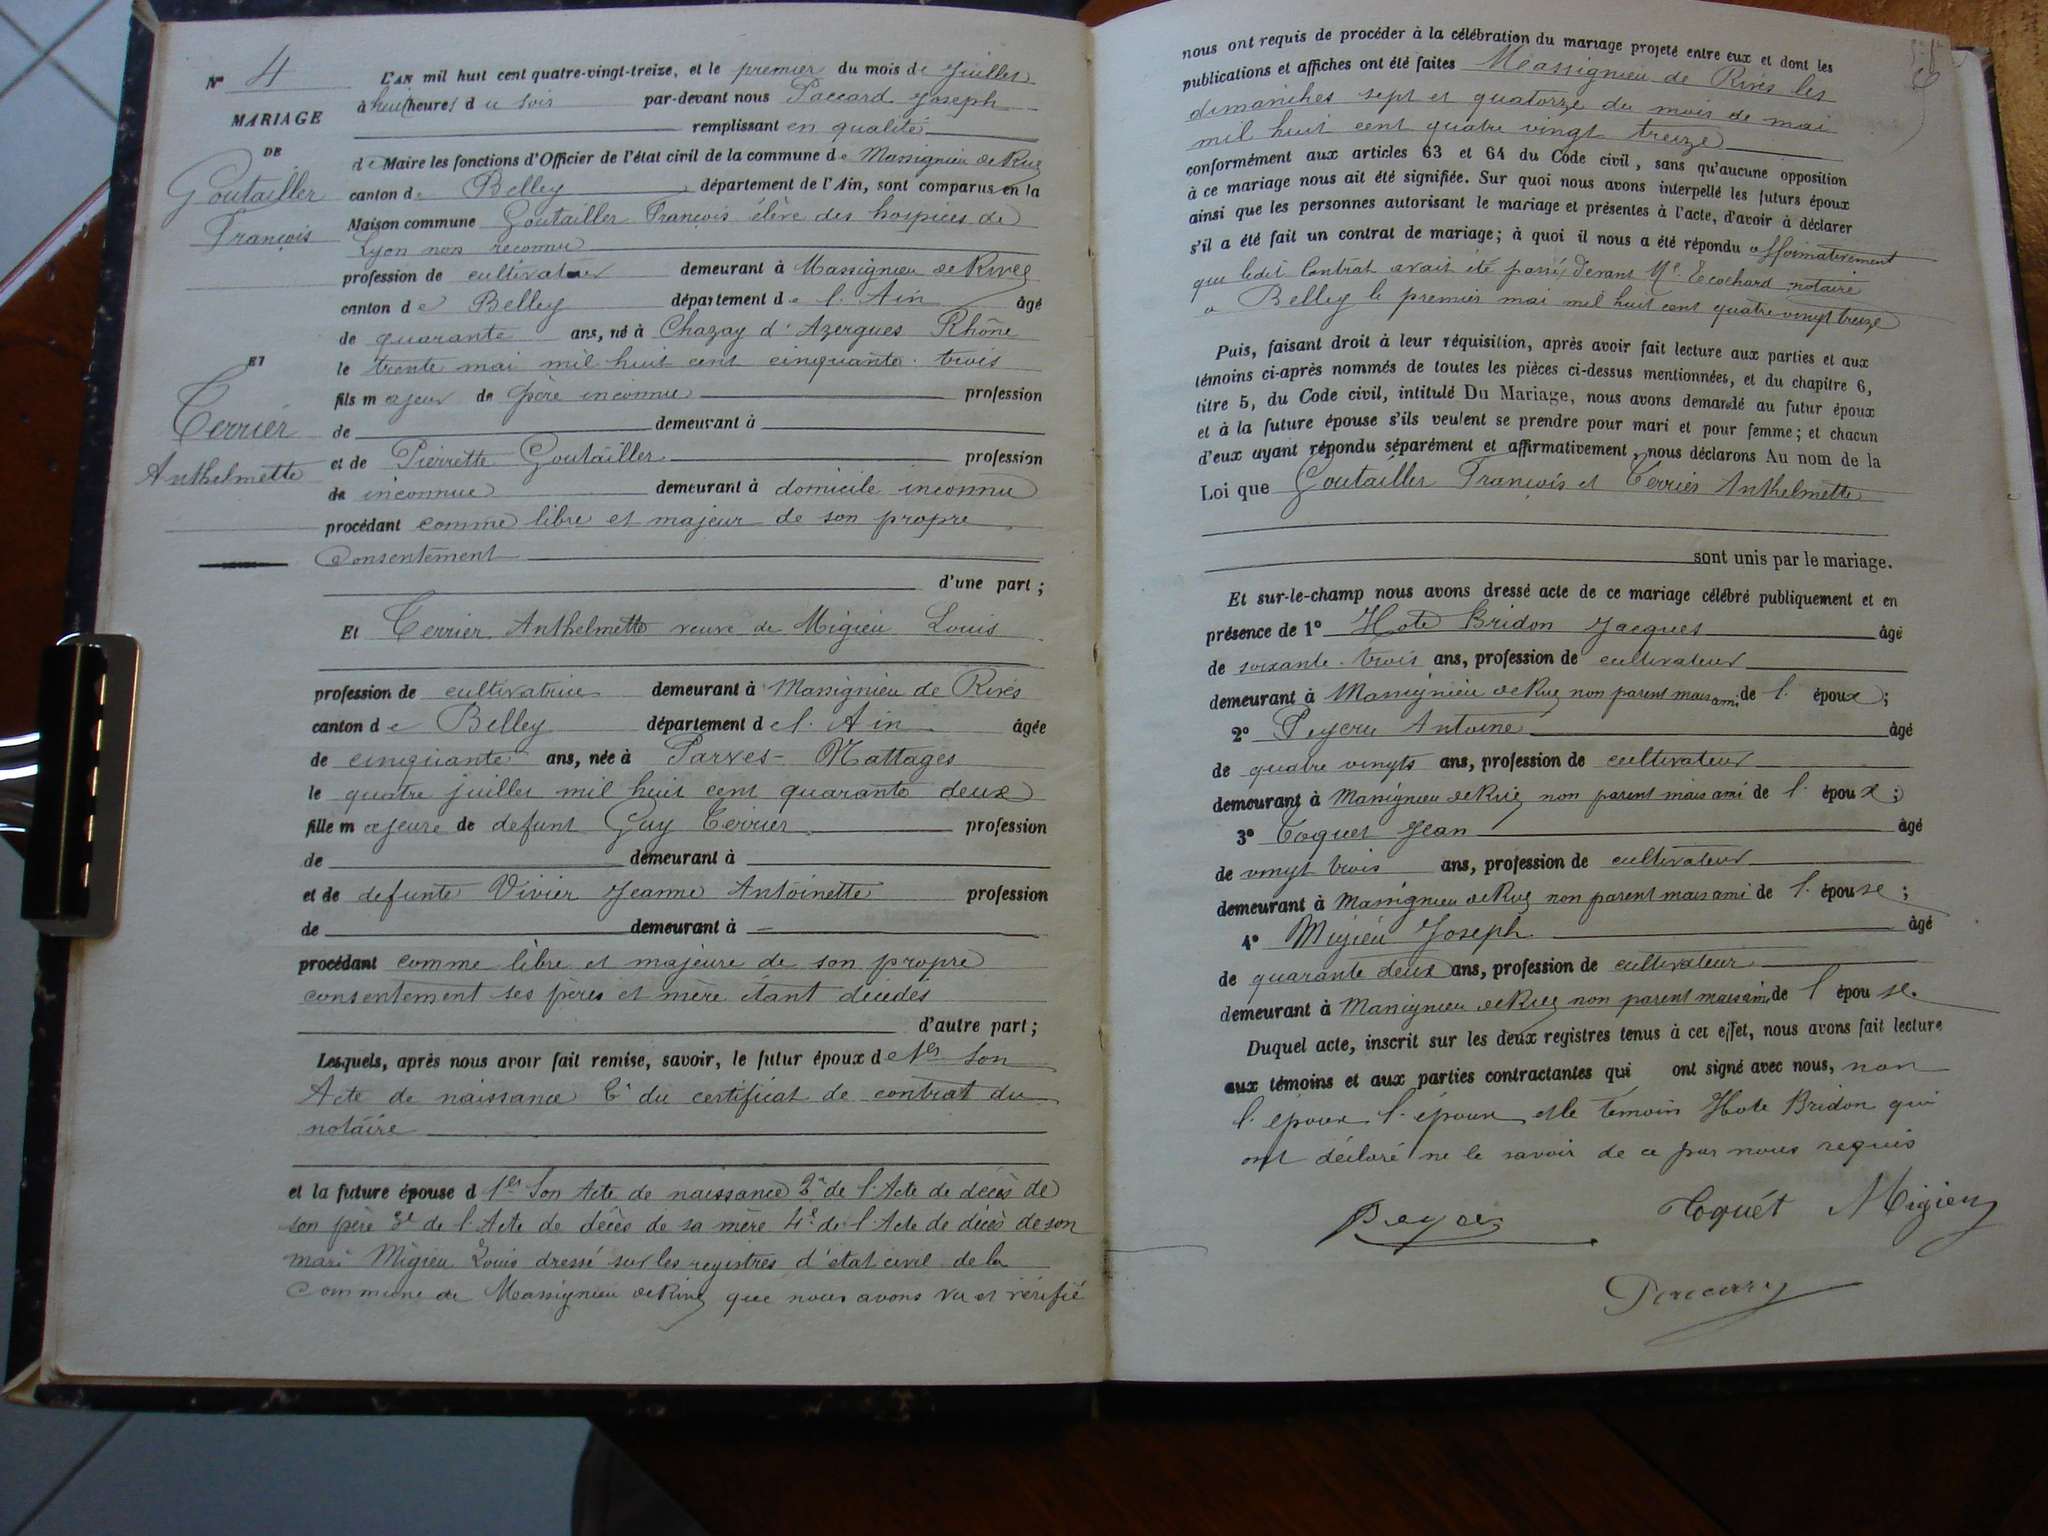 N° 4
MARIAGE
DE
Goutailler
François
ET
Terrier
Anthelmette
L'AN mil huit cent quatre-vingt-treize, et le premier du mois de Juillet
à huit heures du soir par-devant nous Paccard Joseph
remplissant en qualité
de Maire les fonctions d'Officier de l'état civil de la commune de Massignieu de Rives
canton de Belley département de l'Ain, sont comparus en la
Maison commune Goutailler François élève des hospices de
Lyon non reconnu
profession de cultivateur demeurant à Massignieu de Rives
canton de Belley département de l'Ain âgé
de quarante ans, né à Chazay d'Azergues Rhône
le trente mai mil huit cent cinquante-trois
fils majeur de père inconnu profession
de demeurant à
et de Pierrette Goutailler profession
de inconnue demeurant à domicile inconnu
procédant comme libre et majeur de son propre
Consentement
d'une part ;
Et Terrier Anthelmette veuve de Migieu Louis
profession de cultivatrice demeurant à Massignieu de Rives
canton de Belley département de l'Ain âgée
de cinquante ans, née à Parves-Nattages
le quatre juillet mil huit cent quarante deux
fille majeure de defunt Guy Terrier profession
de demeurant à
et de defunte Vivier Jeanne Antoinette profession
de demeurant à
procédant comme libre et majeure de son propre
consentement ses pères et mère étant décédés
d'autre part ;
Lesquels, après nous avoir fait remise, savoir, le futur époux de 1er Son
Acte de naissance 2° du certificat de contrat du
notaire
et la future épouse d 1er Son Acte de naissance 2° de l'Acte de décès de
son père 3e de l'Acte de décès de sa mère 4e de l'Acte de décès de son
mari Migieu Louis dressé sur les registres d'état civil de la
Commune de Massignieu de Rives que nous avons vu et vérifié
nous ont requis de procéder à la célébration du mariage projeté entre eux et dont les
publications et affiches ont été faites Massignieu de Rives les
dimanches sept et quatorze du mois de mai
mil huit cent quatre vingt treize
conformément aux articles 63 et 64 du Code civil, sans qu'aucune opposition
à ce mariage nous ait été signifiée. Sur quoi nous avons interpellé les futurs époux
ainsi que les personnes autorisant le mariage et présentes à l'acte, d'avoir à déclarer
s'il a été fait un contrat de mariage ; à quoi il nous a été répondu affirmativement
que ledit Contrat avait été passé devant Me Ecochard notaire
a Belley le premier mai mil huit cent quatre vingt treize
Puis, faisant droit à leur réquisition, après avoir fait lecture aux parties et aux
témoins ci-après nommés de toutes les pièces ci-dessus mentionnées, et du chapitre 6,
titre 5, du Code civil, intitulé Du Mariage, nous avons demandé au futur époux
et à la future épouse s'ils veulent se prendre pour mari et pour femme ; et chacun
d'eux ayant répondu séparément et affirmativement, nous déclarons Au nom de la
Loi que Goutailler François et Terrier Anthelmette
sont unis par le mariage.
Et sur-le-champ nous avons dressé acte de ce mariage célébré publiquement et en
présence de 1° Hote Bridon Jacques âgé
de soixante-trois ans, profession de cultivateur
demeurant à Massignieu de Rives non parent mais ami de l' époux ;
2° Peycru Antoine âgé
de quatre vingts ans, profession de cultivateur
demeurant à Massignieu de Rives non parent mais ami de l' époux ;
3° Coquet Jean âgé
de vingt trois ans, profession de cultivateur
demeurant à Massignieu de Rives non parent mais ami de l' épouse ;
4° Migieu Joseph âgé
de quarante deux ans, profession de cultivateur
demeurant à Massignieu de Rives non parent mais ami de l' épouse.
Duquel acte, inscrit sur les deux registres tenus à cet effet, nous avons fait lecture
aux témoins et aux parties contractantes qui ont signé avec nous, non
l'époux l'épouse et le témoin Hote Bridon qui
ont déclaré ne le savoir de ce par nous requis
Coquet Migieu